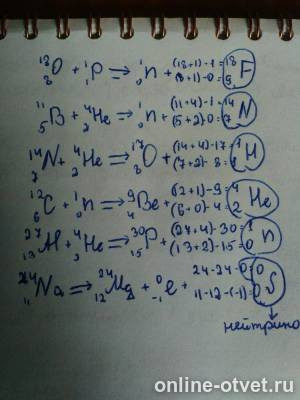 ¹⁸₈O + ¹₁P ⇒ ¹₀n + (18+1)-1=18 (8+1)-0=9 F
¹¹₅B + ⁴₂He ⇒ ¹₀n + (11+4)-1=14 (5+2)-0=7 N
¹⁴₇N + ⁴₂He ⇒ ¹⁷₈O + (14+4)-17=1 (7+2)-8=1 H
¹²₆C + ¹₀n ⇒ ⁹₄Be + (12+1)-9=4 (6+0)-4=2 He
²⁷₁₃Al + ⁴₂He ⇒ ³⁰₁₅P + (27+4)-30=1 (13+2)-15=0 n
²⁴₁₁Na ⇒ ²⁴₁₂Mg + ⁰₋₁e + 24-24-0=0 11-12-(-1)=0
нейтрино
online-otvet.ru